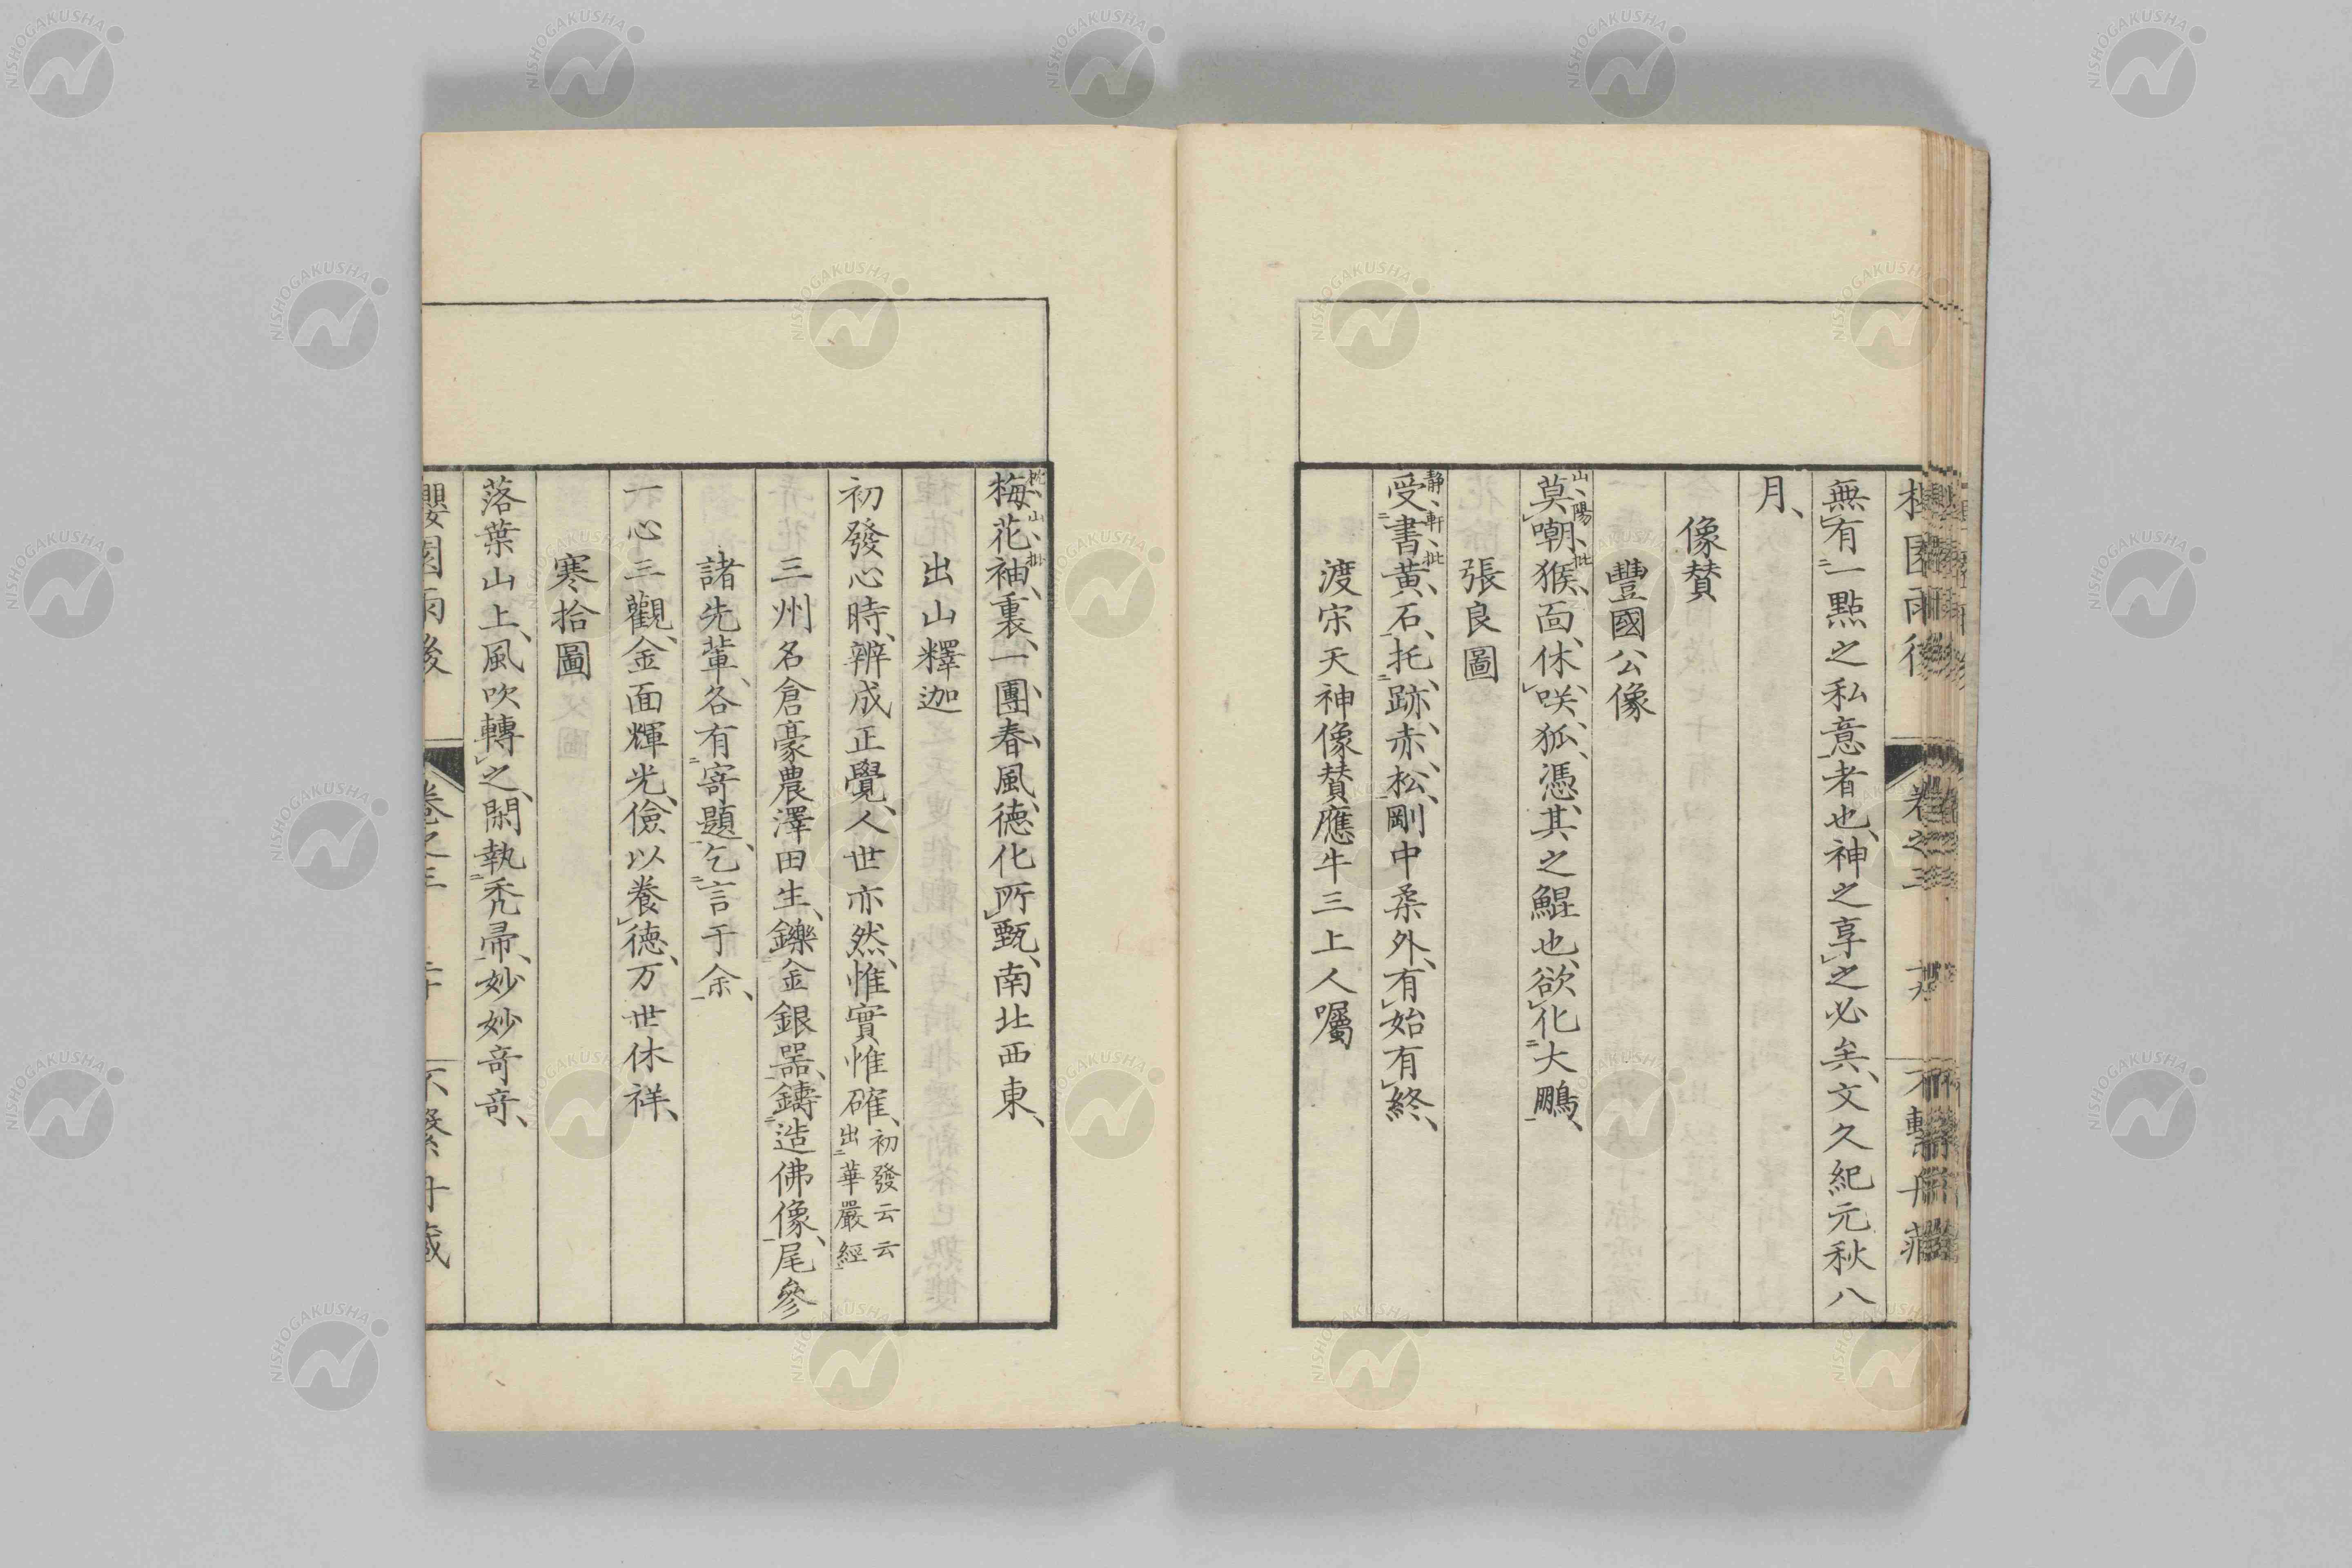 無有一點之私意者也、神之享之必矣、文久紀元秋八
月、
像贊
豐國公像
山陽批
莫嘲猴面、休咲狐憑、其之鯤也、欲化大鵬、
張良圖
靜軒批
受書黃石、托跡赤松、剛中柔外、有始有終、
渡宋天神像贊應牛三上人囑
枕山批
梅花袖裏、一團春風、德化所甄、南北西東、
出山釋迦
初發心時、辨成正覺、人世亦然、惟實惟確、初發云云
出華嚴經
三州名倉豪農澤田生、鑠金銀器、鑄造佛像、尾參
諸先輩、各有寄題、乞言于余、
一心三觀、金面輝光、儉以養德、万世休祥、
寒拾圖
落葉山上、風吹轉之、閑執禿帚、妙妙奇奇、
櫻園雨後
卷之三
NISHOGAKUSHA